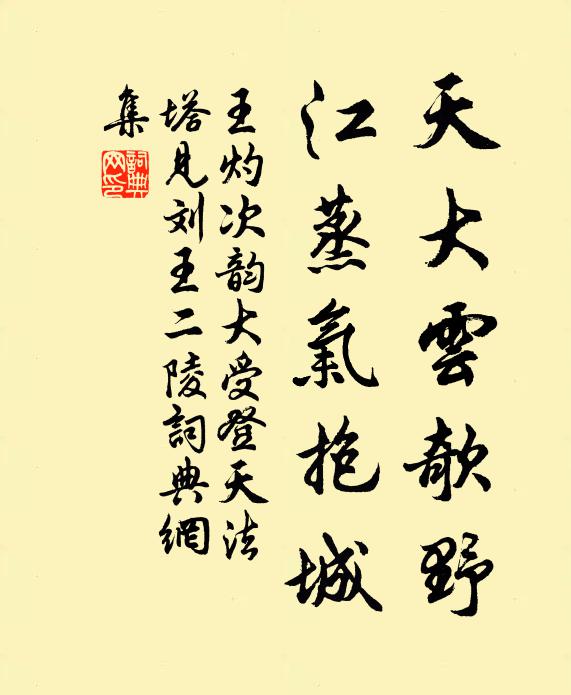 天大雲欹野
江蒸氣抱城
王灼次韵大受登天法
塔見刘王二陵詞典網
集
詞典
网印